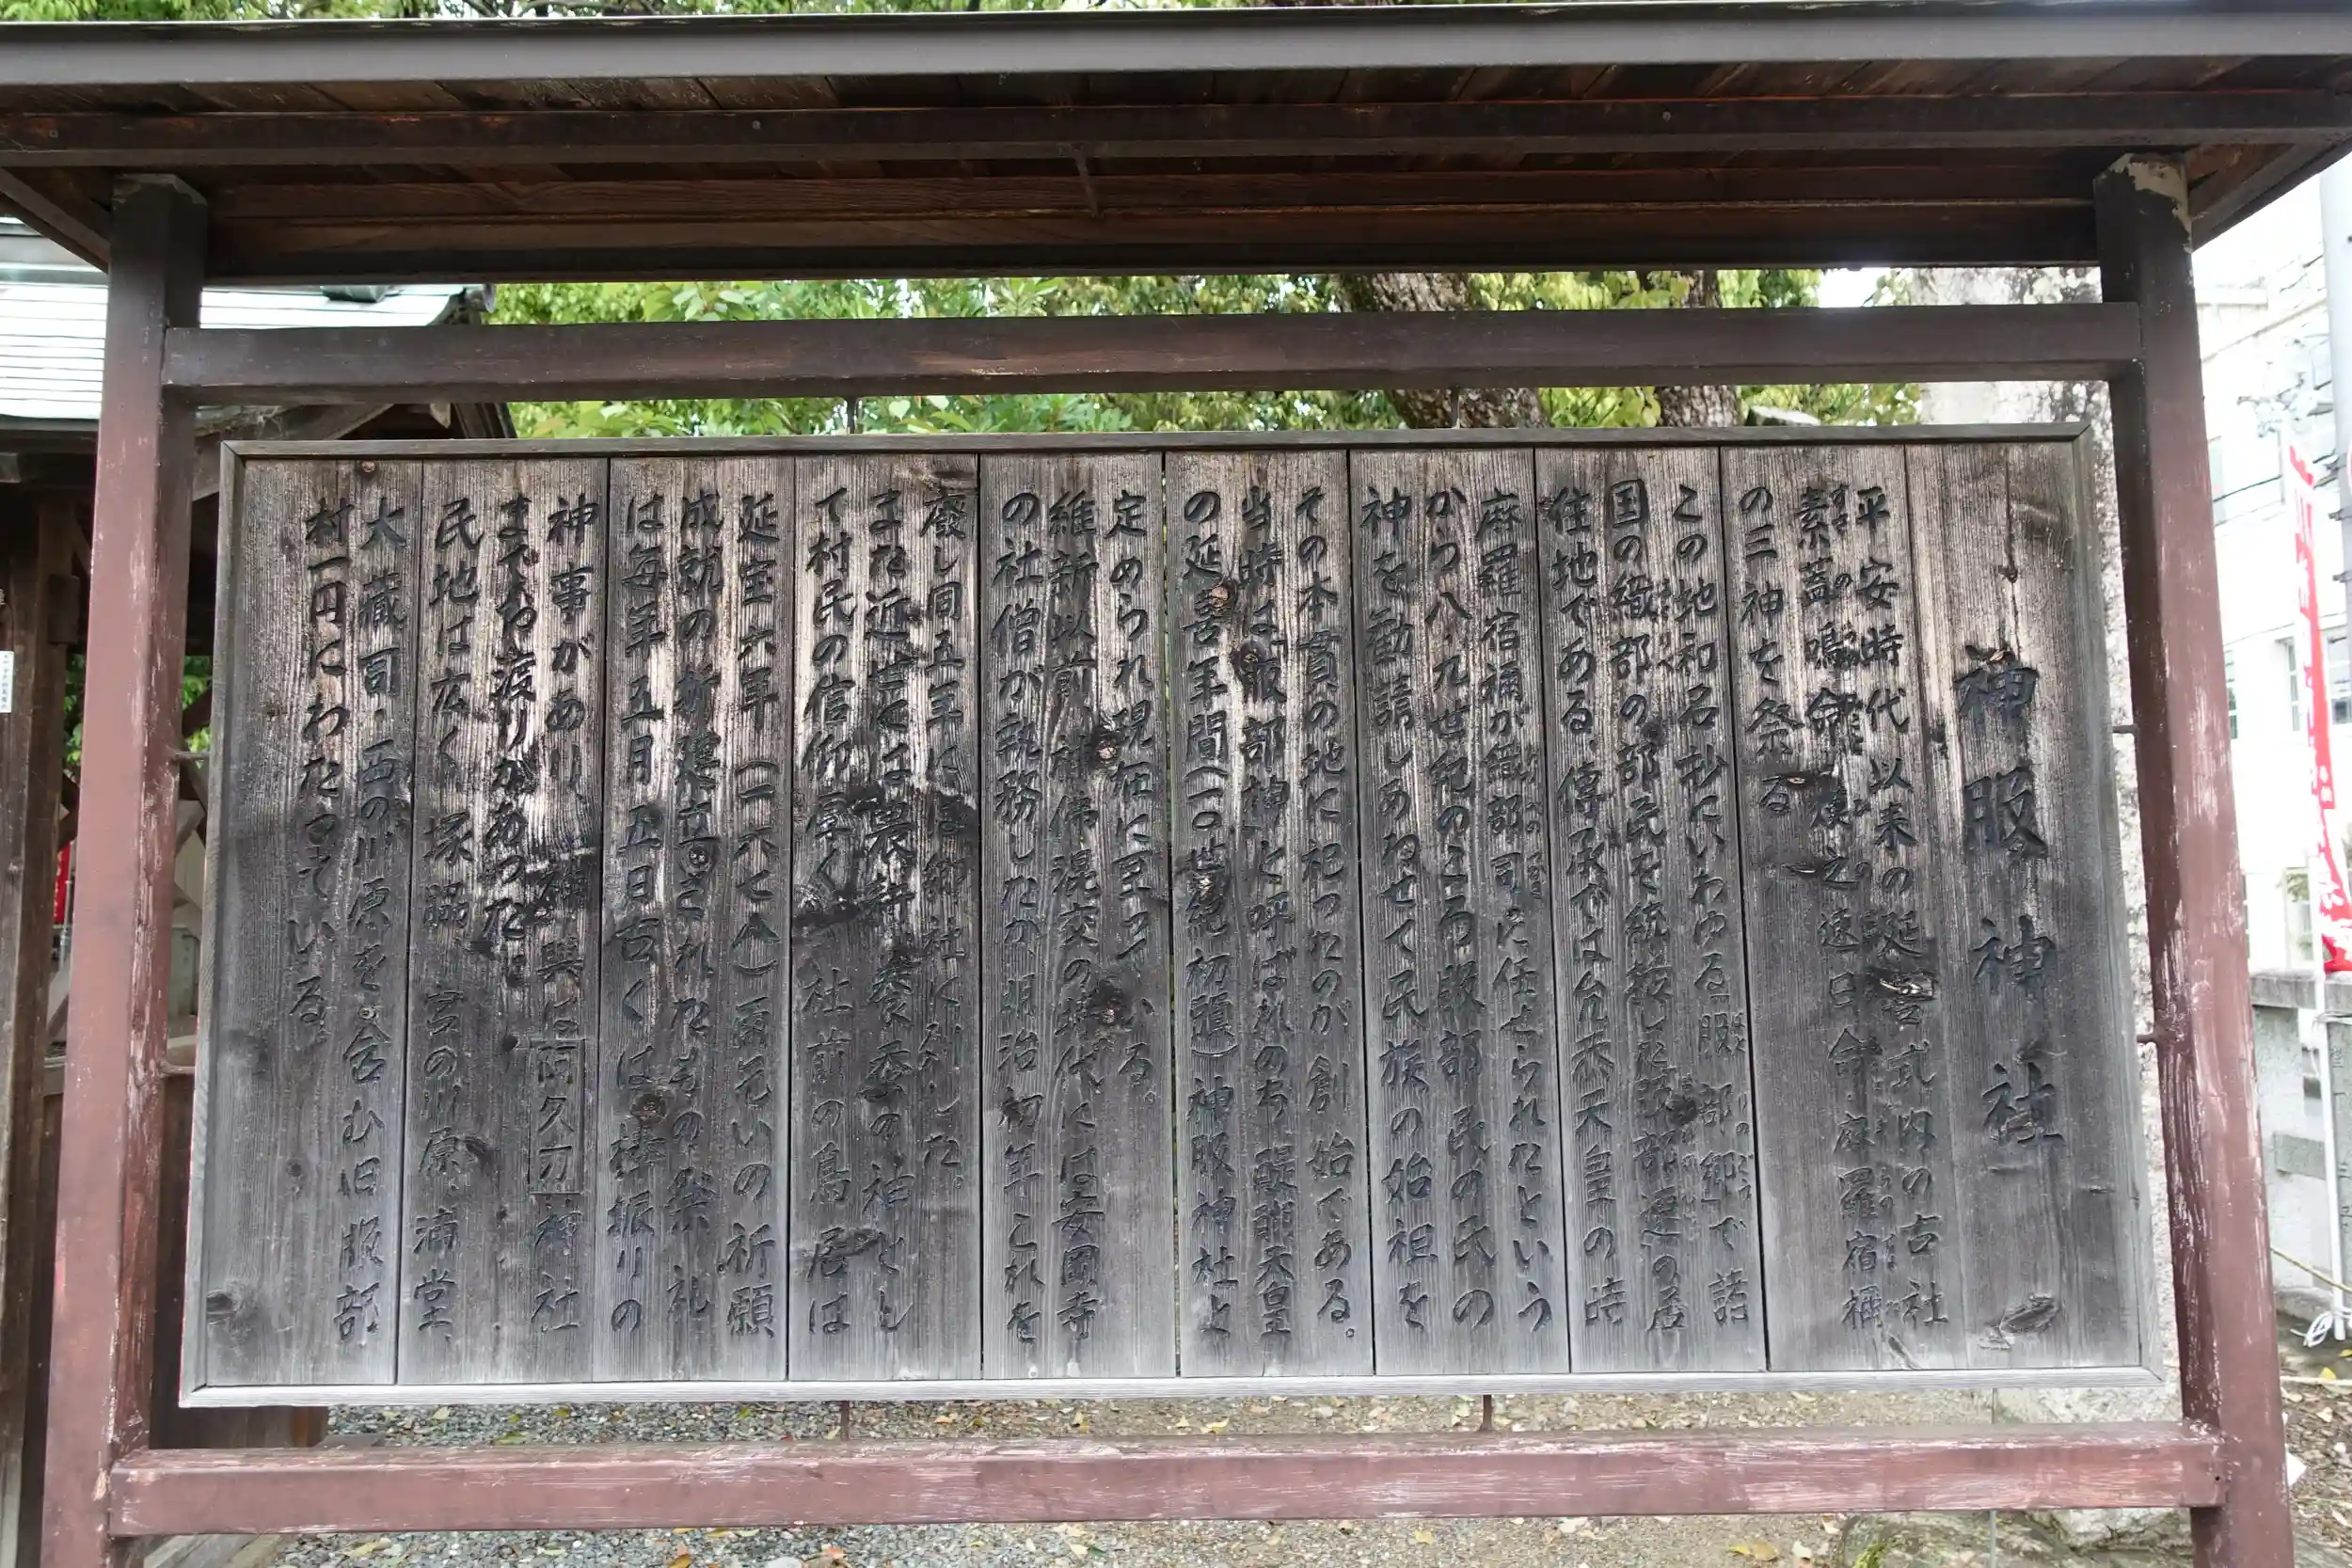 神服神社
平安時代以来の延喜式内の古社
素蓋嗚命・熯之速日命・麻羅宿禰
の三神を祭る
この地和名抄にいわゆる「服部郷」で諸
国の織部の部民を統轄した服部連の居
住地である、傳承では允恭天皇の時
麻羅宿禰が織部司に任せられたという
から八・九世紀のころ服部民の民の
神を勧請しあわせて民族の始祖を
その本貫の地に祀ったのが創始である。
当時は「服部神」と呼ばれのち醍醐天皇
の延喜年間(一〇世紀初頭)神服神社と
定められ現在に至っている。
維新以前神佛混交の時代には安岡寺
の社僧が執務したが明治初年これを
廢し同五年には郷社に列した。
また近世には農耕養蚕の神とし
て村民の信仰厚く 社前の鳥居は
延宝六年(一六七八)雨乞いの祈願
成就の折建立されたもの祭礼
は毎年五月五日古くは棒振りの
神事があり、神輿は阿久刀神社
までお渡りがあった。
民地は広く塚脇、宮の川原、浦堂、
大藏司・西の川原を含む旧服部
村一円にわたっている。